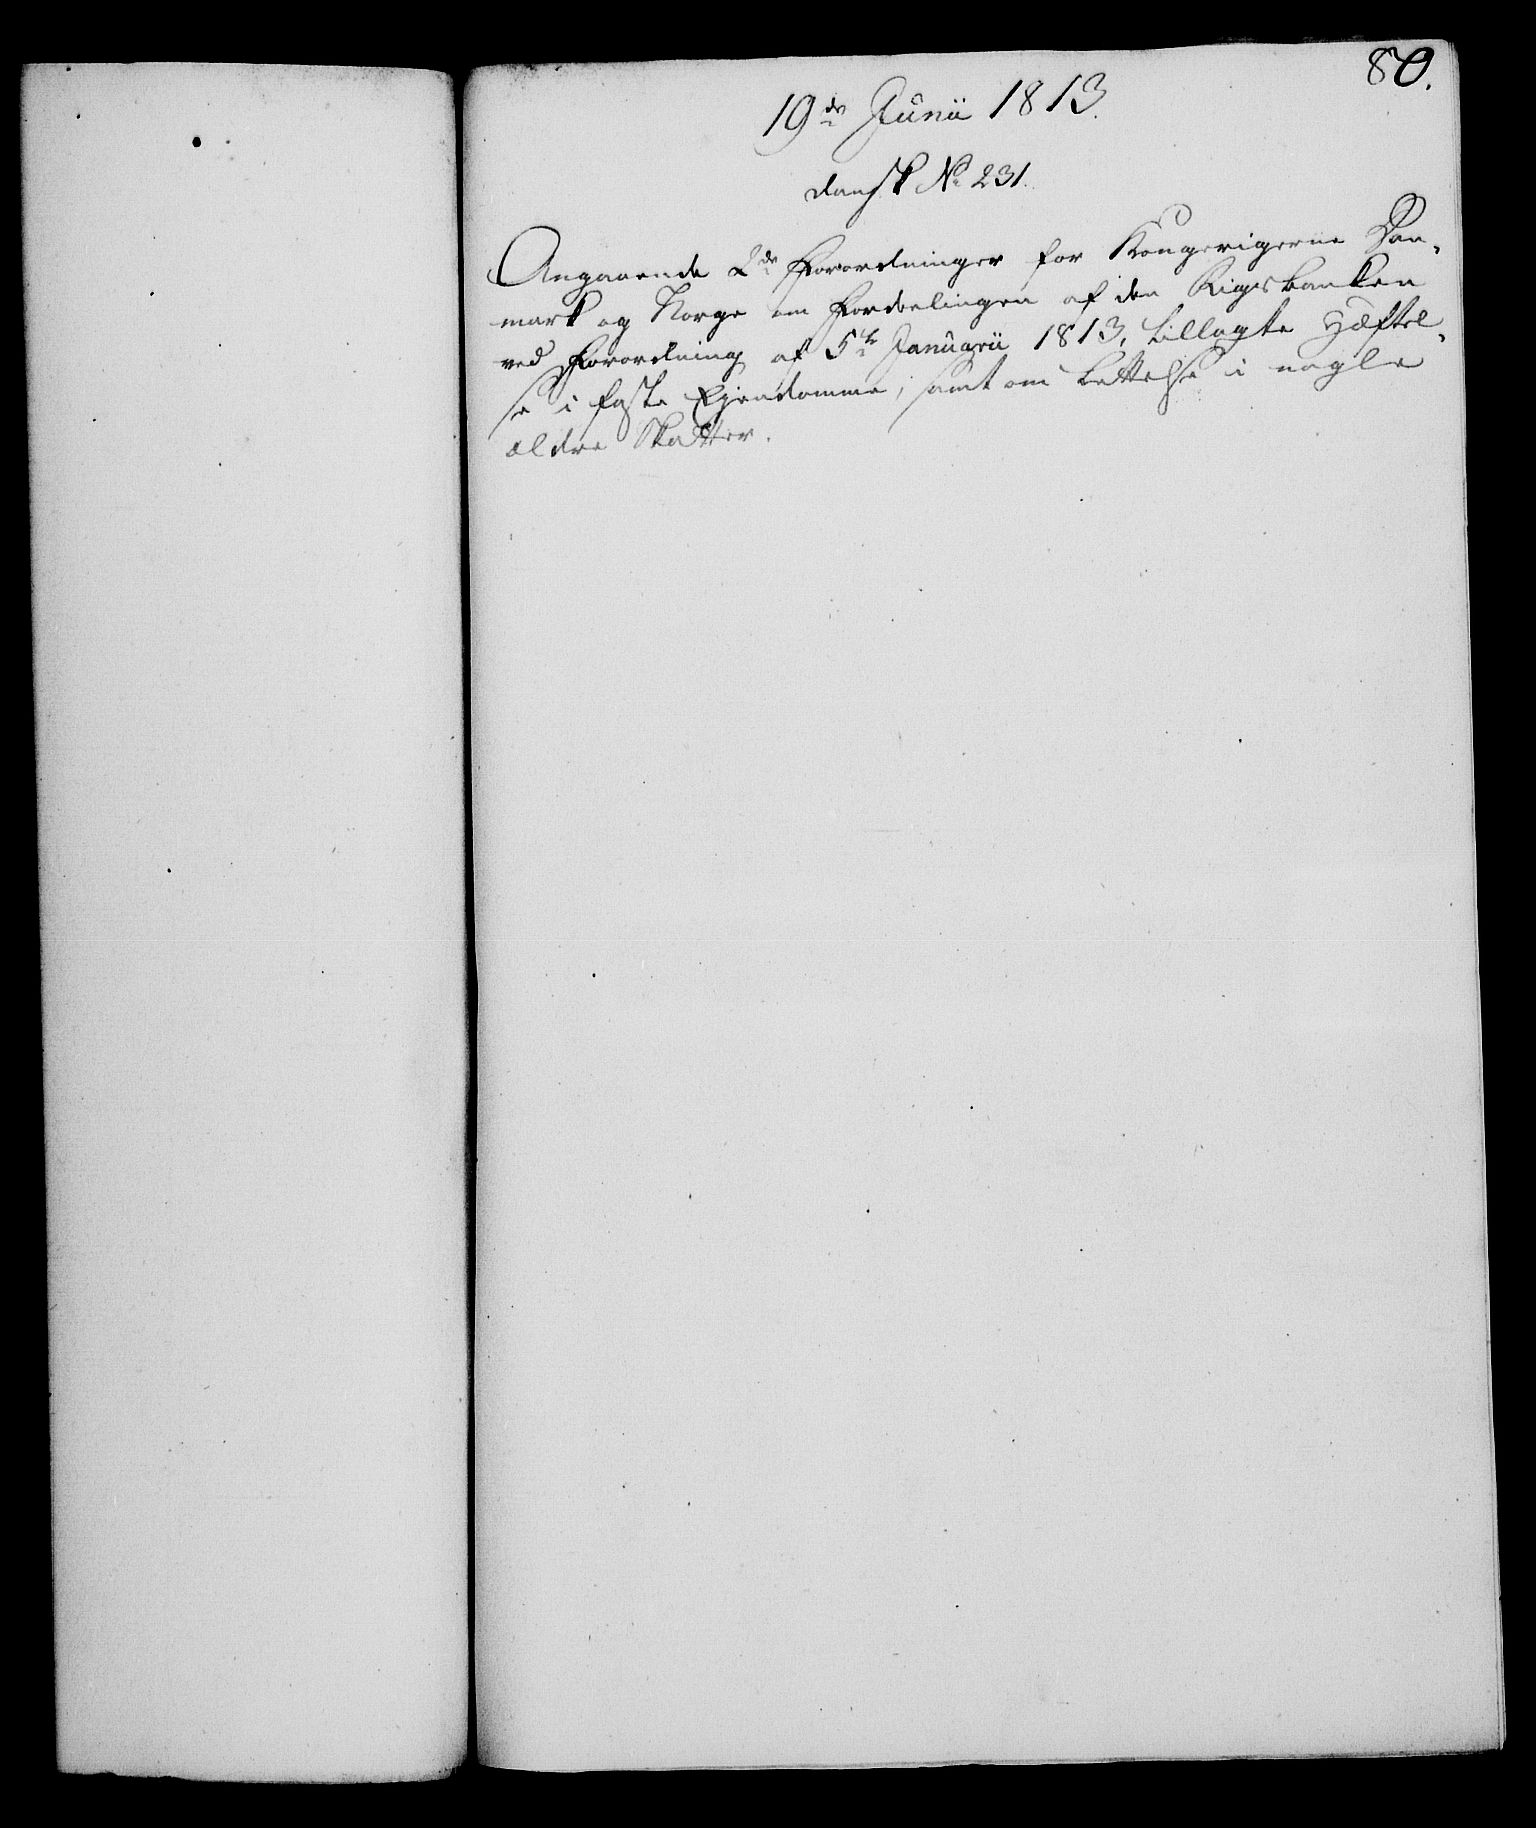 80.
19de Junii 1813.
dansk No 231.
Angaaende 2de Forordninger for Kongerigerne Dan-
mark og Norge om Fordelingen af den Rigsbanken
ved Forordning af 5te Januarii 1813, tillagte Hæftel-
se i faste Ejendomme, samt om Lettelse i nogle
ældre Skatter.